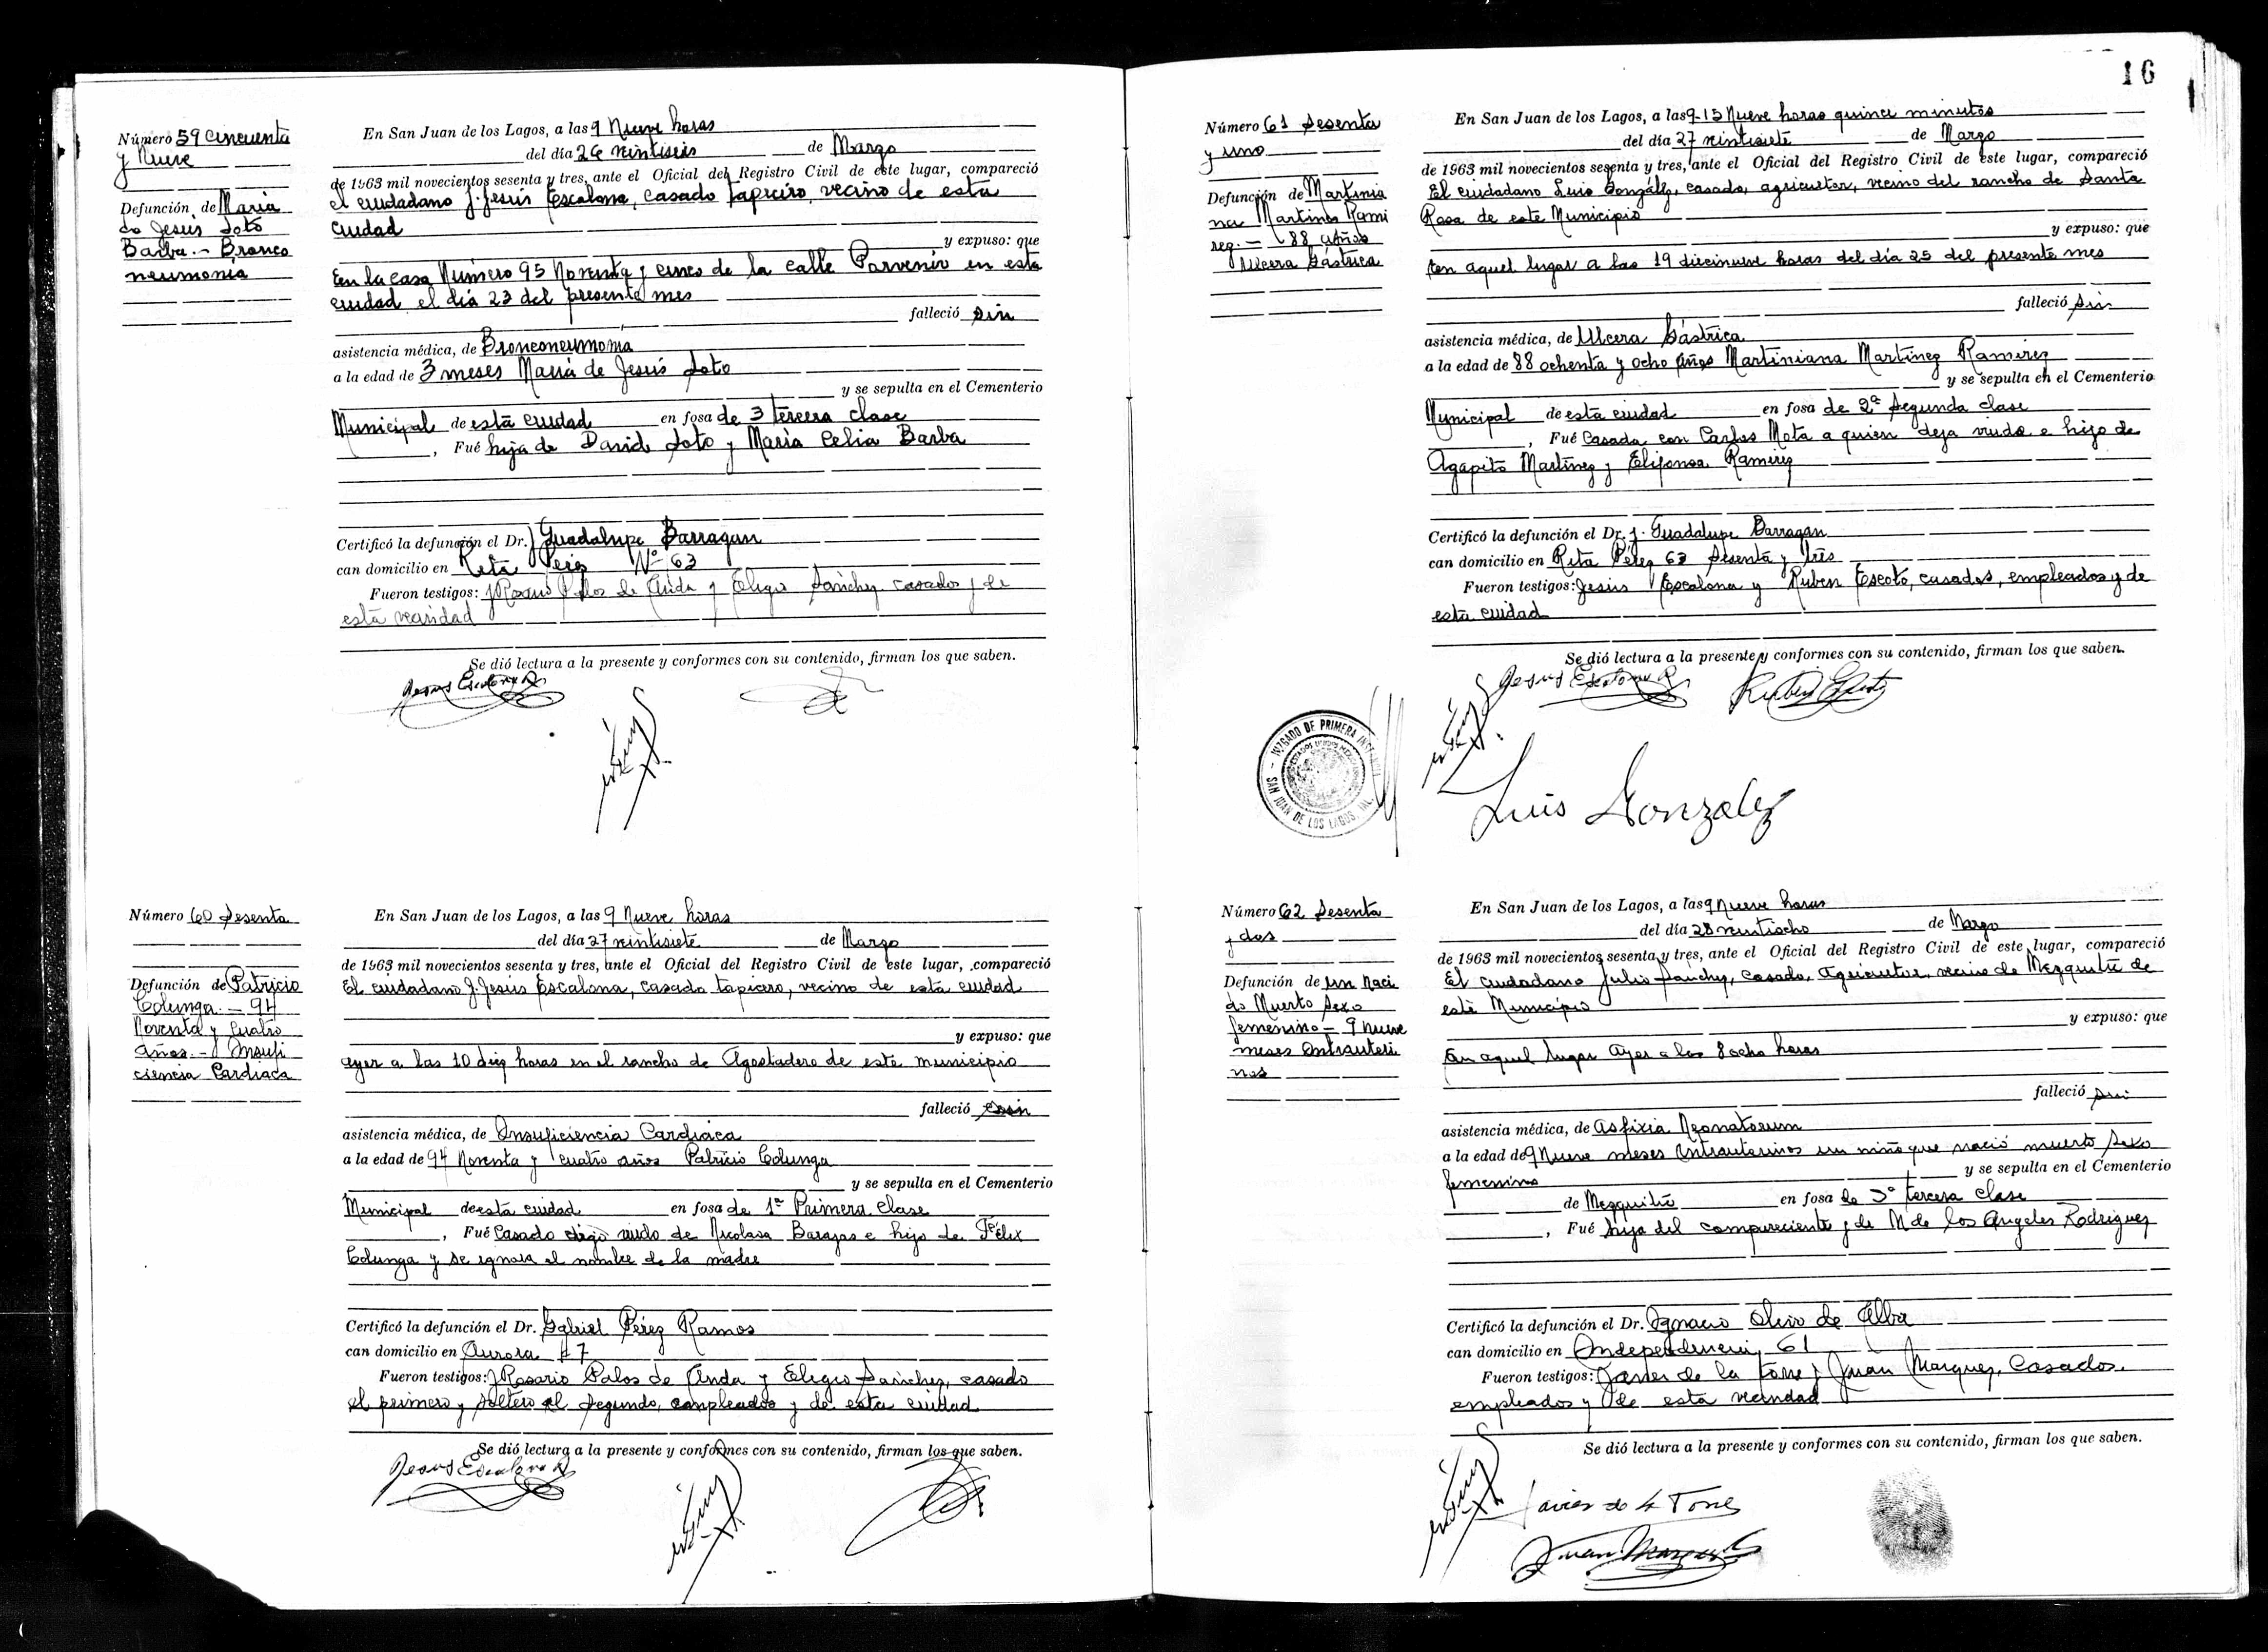 Número 59 Cincuenta
y Nueve
Defunción de Maria
de Jesús Soto
Barba.- Bronco
neumonia
En San Juan de los Lagos, a las 9 Nueve horas
del día 26 veintiseis de Marzo
de 1963 mil novecientos sesenta y tres, ante el Oficial del Registro Civil de este lugar, compareció
el ciudadano J. Jesús Escalona, casado tapicero, vecino de esta
ciudad
y expuso: que
En la casa Número 95 Noventa y cinco de la calle Porvenir en esta
ciudad el día 23 del presente mes
falleció sin
asistencia médica, de Bronconeumonia
a la edad de 3 meses Maria de Jesús Soto
y se sepulta en el Cementerio
Municipal de esta ciudad en fosa de 3 tercera clase
, Fué hija de David Soto y María Celia Barba
Certificó la defunción el Dr. J Guadalupe Barragan
can domicilio en Rita Perez Nº 63
Fueron testigos: J Rosario Palos de Anda y Eligio Sánchez casados y de
esta vecindad
Se dió lectura a la presente y conformes con su contenido, firman los que saben.
Jesus Escalona R
Número 60 Sesenta
Defunción de Patricio
Colunga.- 94
Noventa y cuatro
años.- Insufi
ciencia Cardiaca
En San Juan de los Lagos, a las 9 Nueve horas
del día 27 veintisiete de Marzo
de 1963 mil novecientos sesenta y tres, ante el Oficial del Registro Civil de este lugar, compareció
El ciudadano J. Jesús Escalona, casado tapicero, vecino de esta ciudad
y expuso: que
ayer a las 10 diez horas en el rancho de Agostadero de este municipio
falleció
asistencia médica, de Insuficiencia Cardiaca
a la edad de 94 Noventa y cuatro años Patricio Colunga
y se sepulta en el Cementerio
Municipal de esta ciudad en fosa de 1ª Primera Clase
, Fué Casado digo viudo de Nicolasa Barajas e hijo de Félix
Colunga y se ignora el nombre de la madre
Certificó la defunción el Dr. Gabriel Pérez Ramos
can domicilio en Aurora # 7
Fueron testigos: J Rosario Palos de Anda y Eligio Sánchez, casado
el primero y soltero el segundo, empleados y de esta ciudad
Se dió lectura a la presente y conformes con su contenido, firman los que saben.
Jesus Escalona R
16
Número 61 Sesenta
y uno
Defunción de Martinia
na Martinez Rami
rez.- 88 años
Ulcera Gástrica
En San Juan de los Lagos, a las 9-15 Nueve horas quince minutos
del día 27 veintisiete de Marzo
de 1963 mil novecientos sesenta y tres, ante el Oficial del Registro Civil de este lugar, compareció
El ciudadano Luis González, casado, agricultor, vecino del rancho de Santa
Rosa de este Municipio
y expuso: que
En aquel lugar a las 19 diecinueve horas del día 25 del presente mes
falleció sin
asistencia médica, de Ulcera Gástrica
a la edad de 88 ochenta y ocho años Martiniana Martínez Ramirez
y se sepulta en el Cementerio
Municipal de esta ciudad en fosa de 2ª Segunda clase
, Fué Casada con Carlos Mota a quien deja viudo e hija de
Agapito Martínez y Elifonsa Ramirez
Certificó la defunción el Dr. J. Guadalupe Barragan
can domicilio en Rita Pérez 63 Sesenta y tres
Fueron testigos: Jesús Escalona y Ruben Escoto, casados, empleados y de
esta ciudad
Se dió lectura a la presente y conformes con su contenido, firman los que saben.
Jesus Escalona R
JUZGADO DE PRIMERA INSTANCIA
SAN JUAN DE LOS LAGOS, JAL.
Luis Gonzalez
Número 62 Sesenta
y dos
Defunción de un naci
do Muerto Sexo
femenino - 9 nueve
meses intrauteri
nos
En San Juan de los Lagos, a las 9 Nueve horas
del día 28 veintiocho de Marzo
de 1963 mil novecientos sesenta y tres, ante el Oficial del Registro Civil de este lugar, compareció
El ciudadano Julio Sánchez, casado, agricultor, vecino de Mezquitic de
este Municipio
y expuso: que
En aquel lugar ayer a las 8 ocho horas
falleció sin
asistencia médica, de Asfixia Neonatorum
a la edad de 9 Nueve meses intrauterinos un niño que nació muerto Sexo
femenino y se sepulta en el Cementerio
de Mezquitic en fosa de 3ª tercera clase
, Fué hija del compareciente y de M de los Angeles Rodriguez
Certificó la defunción el Dr. Ignacio Olivo de Alba
can domicilio en Independencia 61
Fueron testigos: Javier de la Torre y Juan Marquez, Casados.
empleados y de esta vecindad
Se dió lectura a la presente y conformes con su contenido, firman los que saben.
Javier de la Torre
Juan Marquez